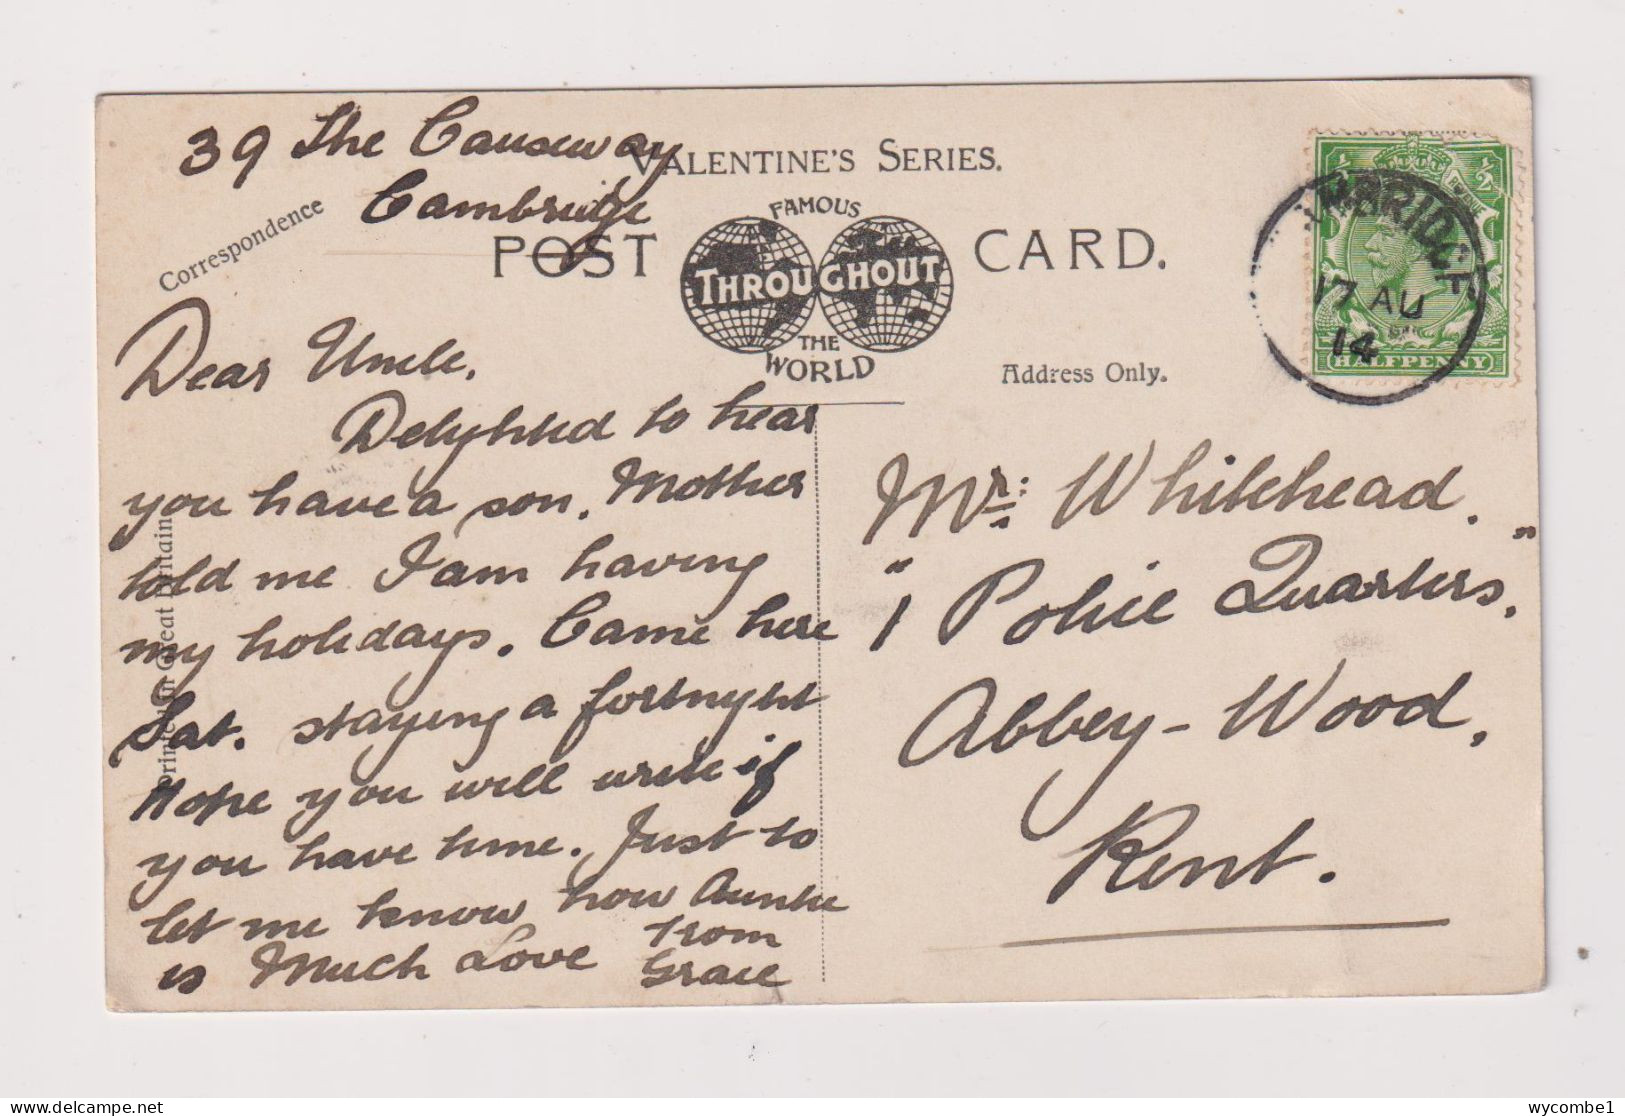 39 The Causeway
Cambridge
Correspondence
VALENTINE'S SERIES.
FAMOUS
POST CARD.
THROUGHOUT
THE
WORLD
Address Only.
Printed in Great Britain
½ ½
HALFPENNY
MBRIDGE
17 AU
14
Dear Uncle,
Delighted to hear
you have a son. Mother
told me I am having
my holidays. Came here
Sat. staying a fortnight
Hope you will write if
you have time. Just to
let me know how Auntie
is Much Love From
Grace
Mr: Whitehead.
" 1 Police Quarters, "
Abbey-Wood,
Kent.
wycombe1